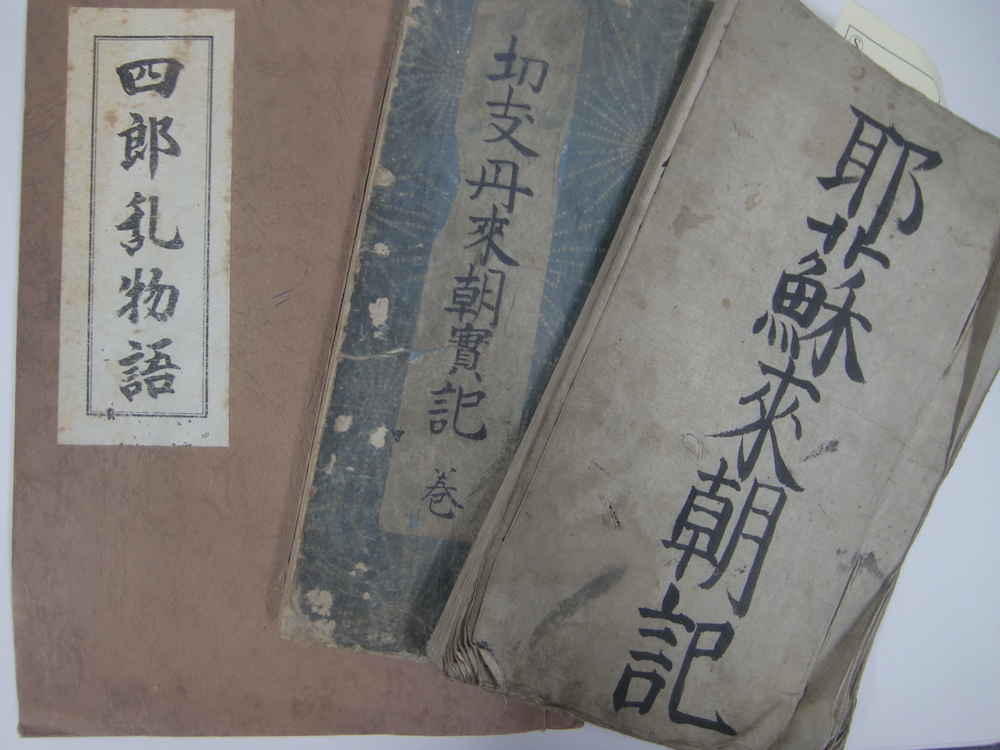 四郎乱物語
切支丹來朝實記
巻
耶蘇來朝記